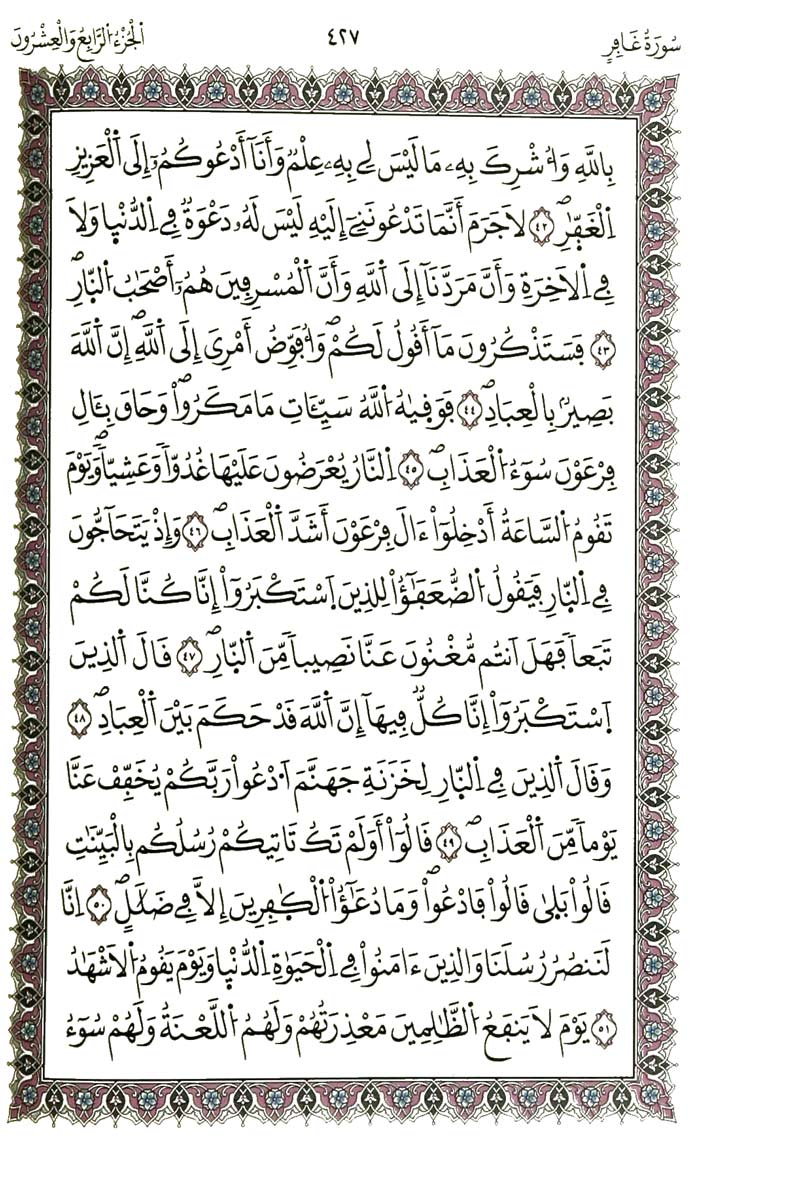 سُورَةُ غَافِرٍ ٤٢٧ اَلْجُزْءُ الرَّابِعُ وَالْعِشْرُونَ
بِاللَّهِ وَأُشْرِكَ بِهِۦ مَا لَيْسَ لِے بِهِۦ عِلْمٌ وَأَنَآ أَدْعُوكُمُۥٓ إِلَى اَلْعَزِيزِ
اِلْغَفّٰرِۖ ٤٢ لاَ جَرَمَ أَنَّمَا تَدْعُونَنِےٓ إِلَيْهِ لَيْسَ لَهُۥ دَعْوَةٌ فِے اِلدُّنْيٜا وَلاَ
فِے اِلَاخِرَةِ وَأَنَّ مَرَدَّنَآ إِلَى اَللَّهِ وَأَنَّ اَلْمُسْرِفِينَ هُمُۥٓ أَصْحَٰبُ اُلنّٜارِۖ
٤٣ فَسَتَذْكُرُونَ مَآ أَقُولُ لَكُمْۖ وَأُفَوِّضُ أَمْرِيَ إِلَى اَللَّهِۖ إِنَّ اَللَّهَ
بَصِيرُۢ بِالْعِبَادِۖ ٤٤ فَوَقٜيٰهُ اُللَّهُ سَيِّـَٔاتِ مَا مَكَرُواْۖ وَحَاقَ بِـَٔالِ
فِرْعَوْنَ سُوٓءُ اُلْعَذَابِۖ ٤٥ اِلنَّارُ يُعْرَضُونَ عَلَيْهَا غُدُوّاٗ وَعَشِيّاٗۖ وَيَوْمَ
تَقُومُ اُلسَّاعَةُ أَدْخِلُوٓاْ ءَالَ فِرْعَوْنَ أَشَدَّ اَلْعَذَابِۖ ٤٦ وَإِذْ يَتَحَآجُّونَ
فِے اِلنّٜارِ فَيَقُولُ اُلضُّعَفَٰٓؤُاْ لِلذِينَ اَسْتَكْبَرُوٓاْ إِنَّا كُنَّا لَكُمْ
تَبَعاٗ فَهَلَ اَنتُم مُّغْنُونَ عَنَّا نَصِيباٗ مِّنَ اَلنّٜارِۖ ٤٧ قَالَ اَلذِينَ
اَسْتَكْبَرُوٓاْ إِنَّا كُلّٞ فِيهَآ إِنَّ اَللَّهَ قَدْ حَكَمَ بَيْنَ اَلْعِبَادِۖ ٤٨
وَقَالَ اَلذِينَ فِے اِلنّٜارِ لِخَزَنَةِ جَهَنَّمَ اَدْعُواْ رَبَّكُمْ يُخَفِّفْ عَنَّا
يَوْماٗ مِّنَ اَلْعَذَابِۖ ٤٩ قَالُوٓاْ أَوَلَمْ تَكُ تَاتِيكُمْ رُسُلُكُم بِالْبَيِّنَٰتِ
قَالُواْ بَلٜيٰ قَالُواْ فَادْعُواْۖ وَمَا دُعَٰٓؤُاْ اُلْكٰ۪فِرِينَ إِلاَّ فِے ضَلَٰلٍۖ ٥٠ اِنَّا
لَنَنصُرُ رُسُلَنَا وَالذِينَ ءَامَنُواْ فِے اِلْحَيَوٰةِ اِلدُّنْيٜا وَيَوْمَ يَقُومُ اُلَاشْهَٰدُ
٥١ يَوْمَ لاَ يَنفَعُ اُلظَّٰلِمِينَ مَعْذِرَتُهُمْ وَلَهُمُ اُللَّعْنَةُ وَلَهُمْ سُوٓءُ